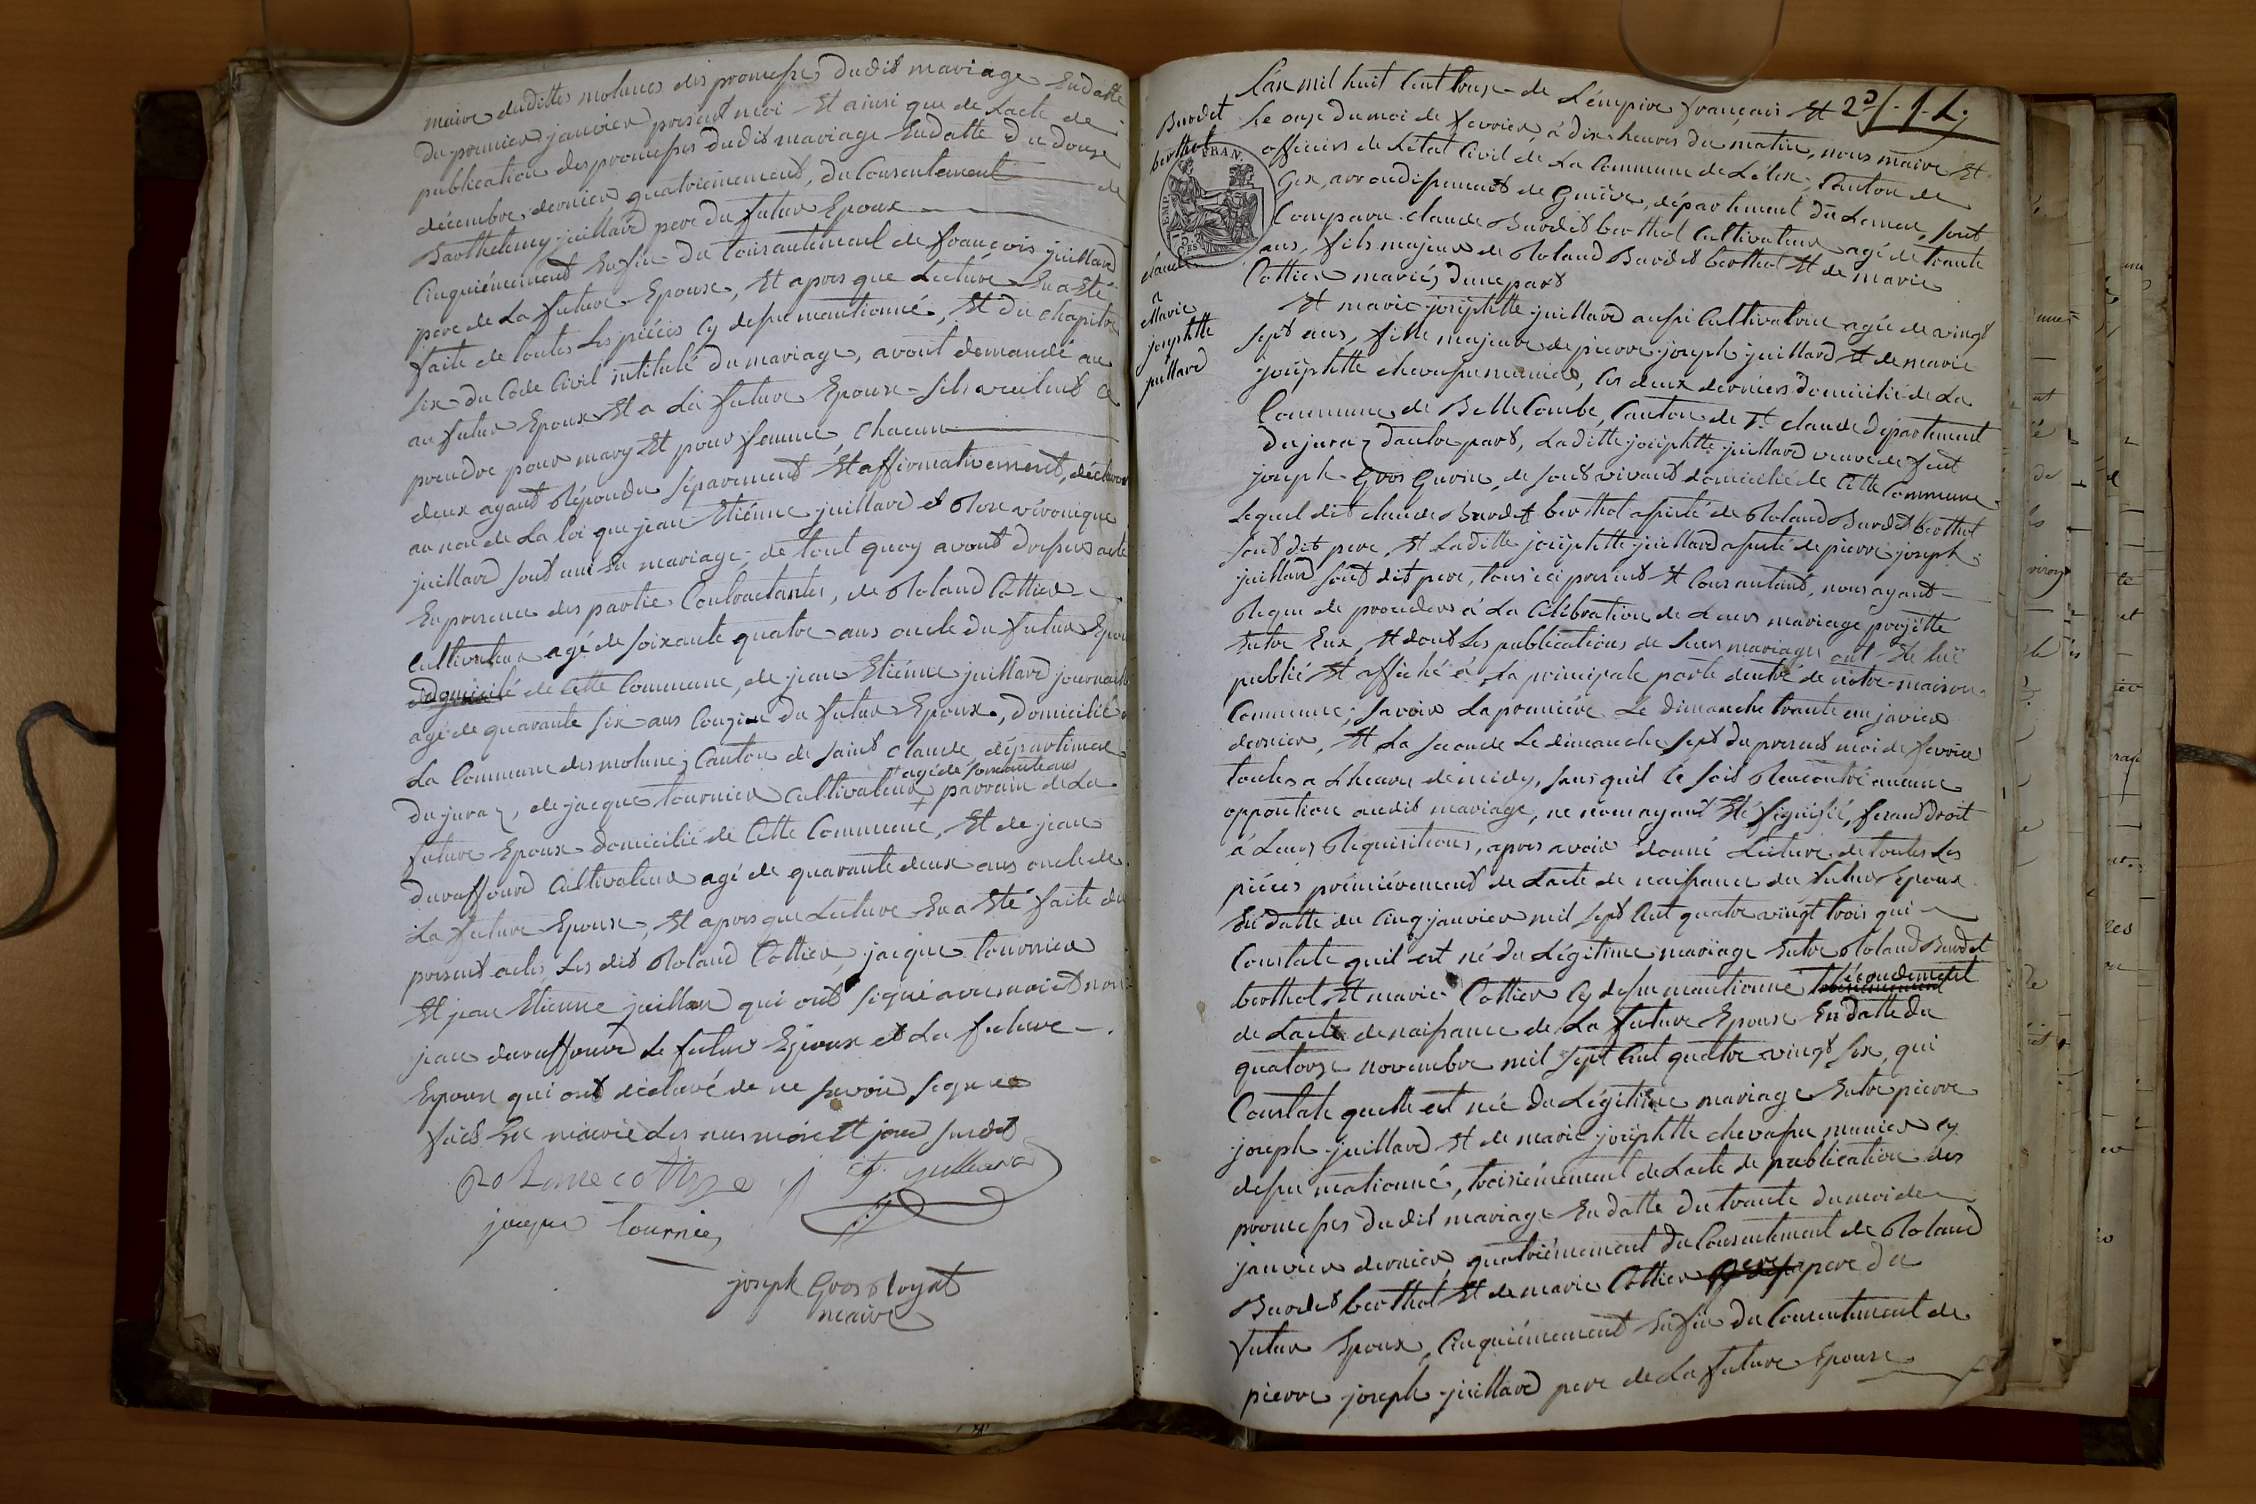 maire du dittes molunes des promesses dudit mariage En datte
du premier janvier présent moi Et ainsi que de Lacte de
publication des promesses dudit mariage En datte du douze
décembre dernier quatriémement, du Consentement de
Barthelemy juillard pere du futur Epoux
Cinquiémement Enfin du Consantement de françois juillard
pere de La future Epouse, Et apres que Lecture En a Eté
faite de toutes Les piéces Cy dessu mantionné, Et du chapitre
six du Code Civil intitulé du mariage, avont demandé au
au futur Epoux Et a La future Epouse s'ils veulent ce
prendre pour mary Et pour femme, chacun
deux ayant Répondu séparement Et affirmativement, déclaron
au non de La loi que jean Etiénne juillard et Rose véronique
juillard sont uni En mariage, de tout quoy avont dressés acte
En presence des partie Contractantes, de Roland Cottier
Cultivateur agé de soixante quatre ans oncle du futur Epou
domicilé de Cette Commune, de jean Etienne juillard journaill
agé de quarante six ans Couzin du futur Epoux, domicilié
La Commune des molune, Canton de saint claude, départimen
agé de soixante ans
du jura, de jacque tournier Cultivateur + parrain de La
future Epouse domicilié de Cette Commune, Et de jean
duraffourd Cultivateur agé de quarante deux ans oncle de
La future Epouse, Et apres que Lecture En a Eté faite du
présent acte Les dit Roland Cottier, jacque tournier
Et jean Etienne juillar qui ont signé avec moi et non
jean duraffourd Le futur Epoux et La future
Epouse qui ont déclaré de ne savoir signer
fait En mairie Les ans mois Et jour susdit
Rolane cottiez
j E juillard
jacque tournier
joseph Gros Royat
maire
2d f. 1. L.
Burdet
berthet
claude
a
Marie
josephtte
juillard
EMP. FRAN.
75 CES
L'an mil huit Cent douze de L'émpire français Et
Le onze du moi de fevrier, à dix heures du matin, nous maire Et
officier de L'état Civil de La Commune de Lélex, Canton de
Gex, arrondissement de Genève, département du Leman, sont
Comparu claude Burdet berthet Cultivateur agé de trante
ans, fils majeur de Roland Burdet berthet Et de marie
Cottier mariés, dune part
Et marie josephtte juillard aussi Cultivatrice agée de vingt
sept ans, fille majeure de pierre joseph juillard Et de marie
josephtte chevassu mariés, Ces deux derniers domicilié de La
Commune de Belle Combe, Canton de St. claude département
du jura, dautre part, Ladite josephtte juillard veuve de feut
joseph Gros Gurin, de sont vivant domicilié de Cette Commune
Lequel dit claude Burdet berthet assisté de Roland Burdet berthet
sont dit pere, Et Ladite josephtte juillard assisté de pierre joseph
juillard sont dit pere, tous ici présent Et Consantant, nous ayant
Requi de procéder à La Célébration de Leurs mariage projétté
Entre Eux, Et dont Les publications de Leur mariage ont Eté lui
publié Et affiché à La principale porte dentré de notre maison
Commune, savoir La premiére Le dimanche trante un javier
dernier, Et La seconde Le dimanche sept du présent moi de fevrier
toutes a Lheure de midy, sans quil ce soit Rencontré aucune
oppontion audit mariage, ne nous ayant Eté signifié, fesant droit
à Leurs Réquisitions, apres avoir donné Lecture de toutes Les
piéces premiérement de Lacte de naissance du futur Epoux
En datte du Cinq janvier mil sept Cent quatre vingt trois qui
Constate quil est né du Légitime mariage Entre Roland Burdet
berthet Et marie Cottier Cy dessu mantionné secondement
de Lacte de naissance de La future Epouse En datte du
quatorze novembre mil sept Cent quatre vingt six, qui
Constate quelle est née du Légitime mariage Entre pierre
joseph juillard Et de marie josephtte chevassu mariés cy
dessu mationné, troisiémement de Lacte de publication des
promesses dudit mariage En datte du trante du moi de
janvier dernier, quatriémement du Consentement de Roland
Burdet berthet Et de marie Cottier pere du
futur Epoux, Cinquiémement Enfin du Consentement de
pierre joseph juillard pere de La future Epouse